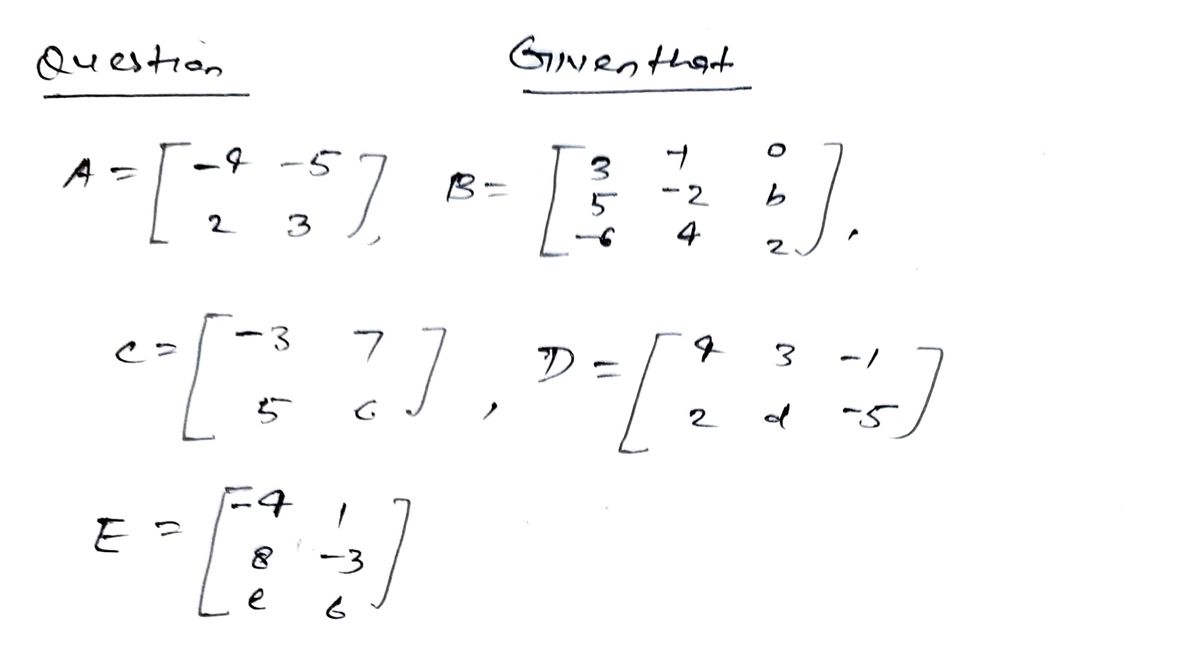 Question Given that
A = [ -4 -5 ; 2 3 ], B = [ 3 -1 0 ; 5 -2 b ; -6 4 2 ],
C = [ -3 7 ; 5 c ], D = [ 4 3 -1 ; 2 d -5 ]
E = [ -4 1 ; 8 -3 ; e 6 ]